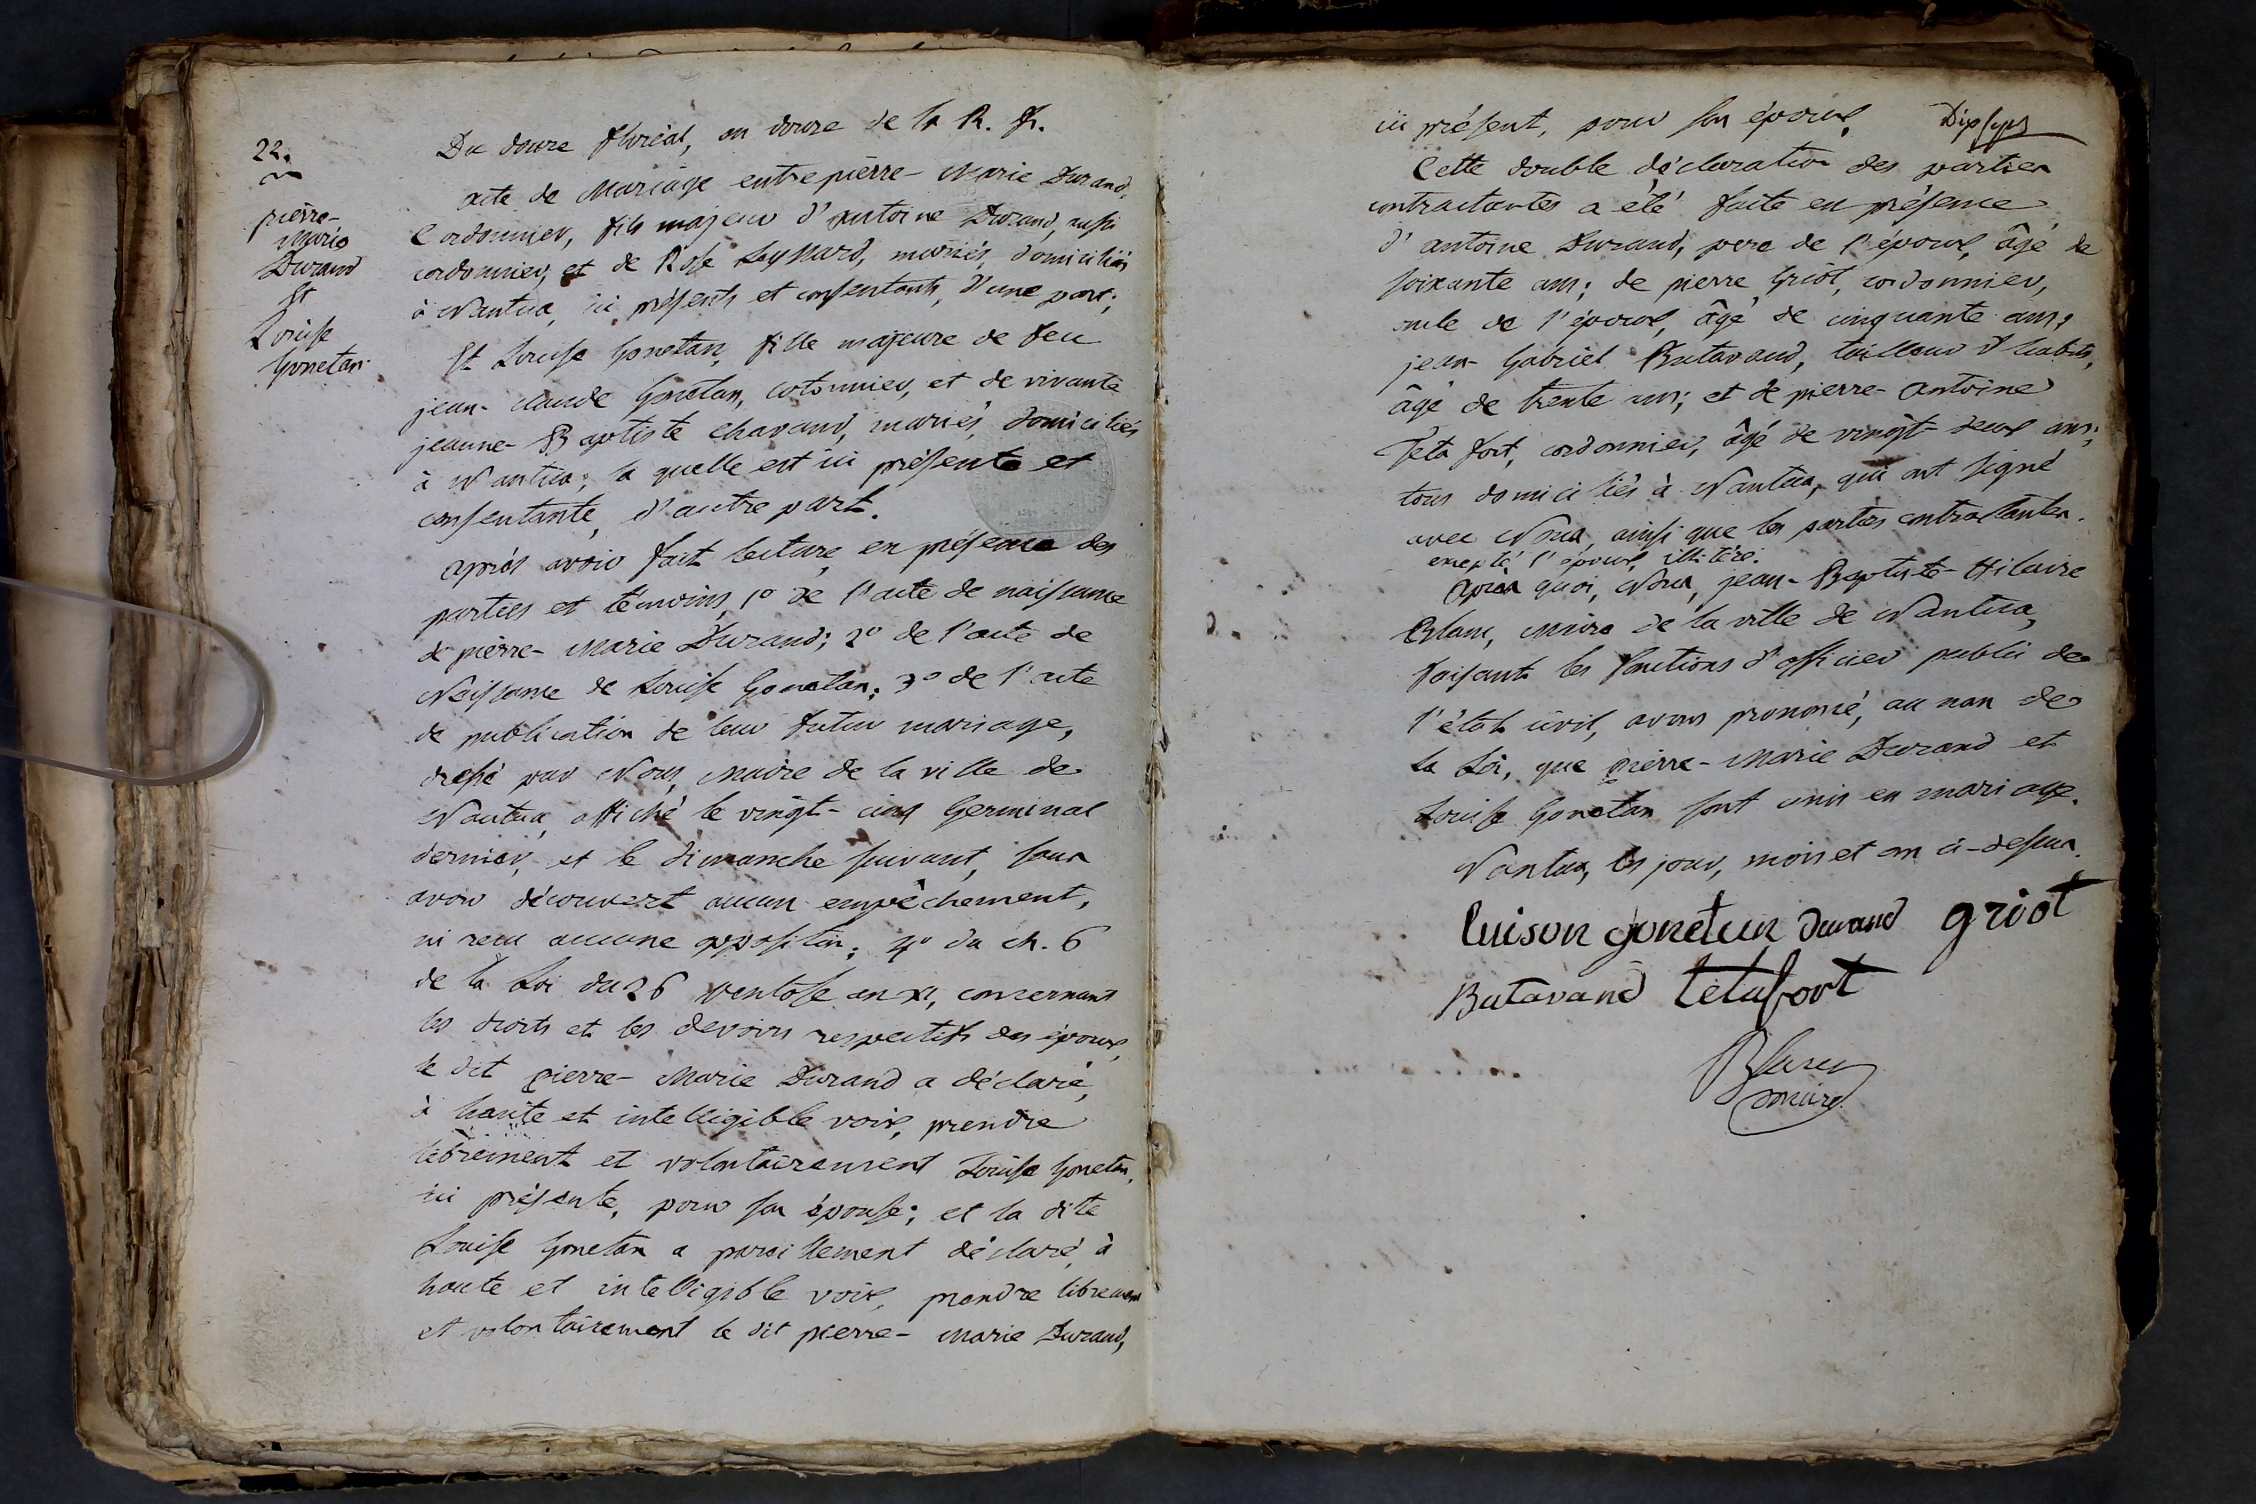 22.
pierre-
Marie
Durand
Et
Louise
Gonetan.
Du douze floréal, an douze de la R. F.
acte de Mariage entre pierre-Marie Durand,
Cordonnier, fils majeur d'antoine Durand, aussi
cordonnier, et de Rose Leynard, mariés, domiciliés
à Nantua, ici présents et consentants, d'une part;
Et Louise Gonetan, fille majeure de feu
jean-claude Gonetan, cotonnier, et de vivante
jeanne-Baptiste chavand, mariés, domiciliés
à Nantua; la quelle est ici présente et
consentante, d'autre part.
après avoir fait lecture, en présence des
parties et témoins, 1º de l'acte de naissance
de pierre-Marie Durand; 2º de l'acte de
Naissance de Louise Gonetan; 3º de l'acte
de publication de leur futur mariage,
dressé par Nous, Maire de la ville de
Nantua, affiché le vingt-cinq Germinal
dernier, et le dimanche suivant, sans
avoir découvert aucun empêchement,
ni reçu aucune opposition; 4º du ch. 6
de la Loi du 26 ventose an XI, concernant
les droits et les devoirs respectifs des époux,
le dit pierre-Marie Durand a déclaré,
à haute et intelligible voix, prendre
librement et volontairement Louise Gonetan,
ici présente, pour son épouse; et la dite
Louise Gonetan a pareillement déclaré, à
haute et intelligible voix, prendre librement
et volontairement le dit pierre-Marie Durand,
ici présent, pour son époux.
Cette double déclaration des parties
contractantes a été faite en présence
d'antoine Durand, pere de l'époux, âgé de
soixante ans; de pierre Griot, cordonnier,
oncle de l'époux, âgé de cinquante ans;
jean-Gabriel Butavand, tailleur d'habits,
âgé de trente ans; et de pierre-antoine
Tetafort, cordonnier, âgé de vingt-deux ans;
tous domiciliés à Nantua, qui ont signé
avec Nous, ainsi que les parties contractantes.
excepté l'époux, illitéré.
Après quoi, Nous, jean-Baptiste-Hilaire
Blanc, Maire de la ville de Nantua,
faisant les fonctions d'officier public de
l'état civil, avons prononcé, au nom de
la Loi, que pierre-Marie Durand et
Louise Gonetan sont unis en mariage.
Nantua, les jour, mois et an ci-dessus.
luison gonetun Durand griot
Butavand tetafort
Blanc
maire